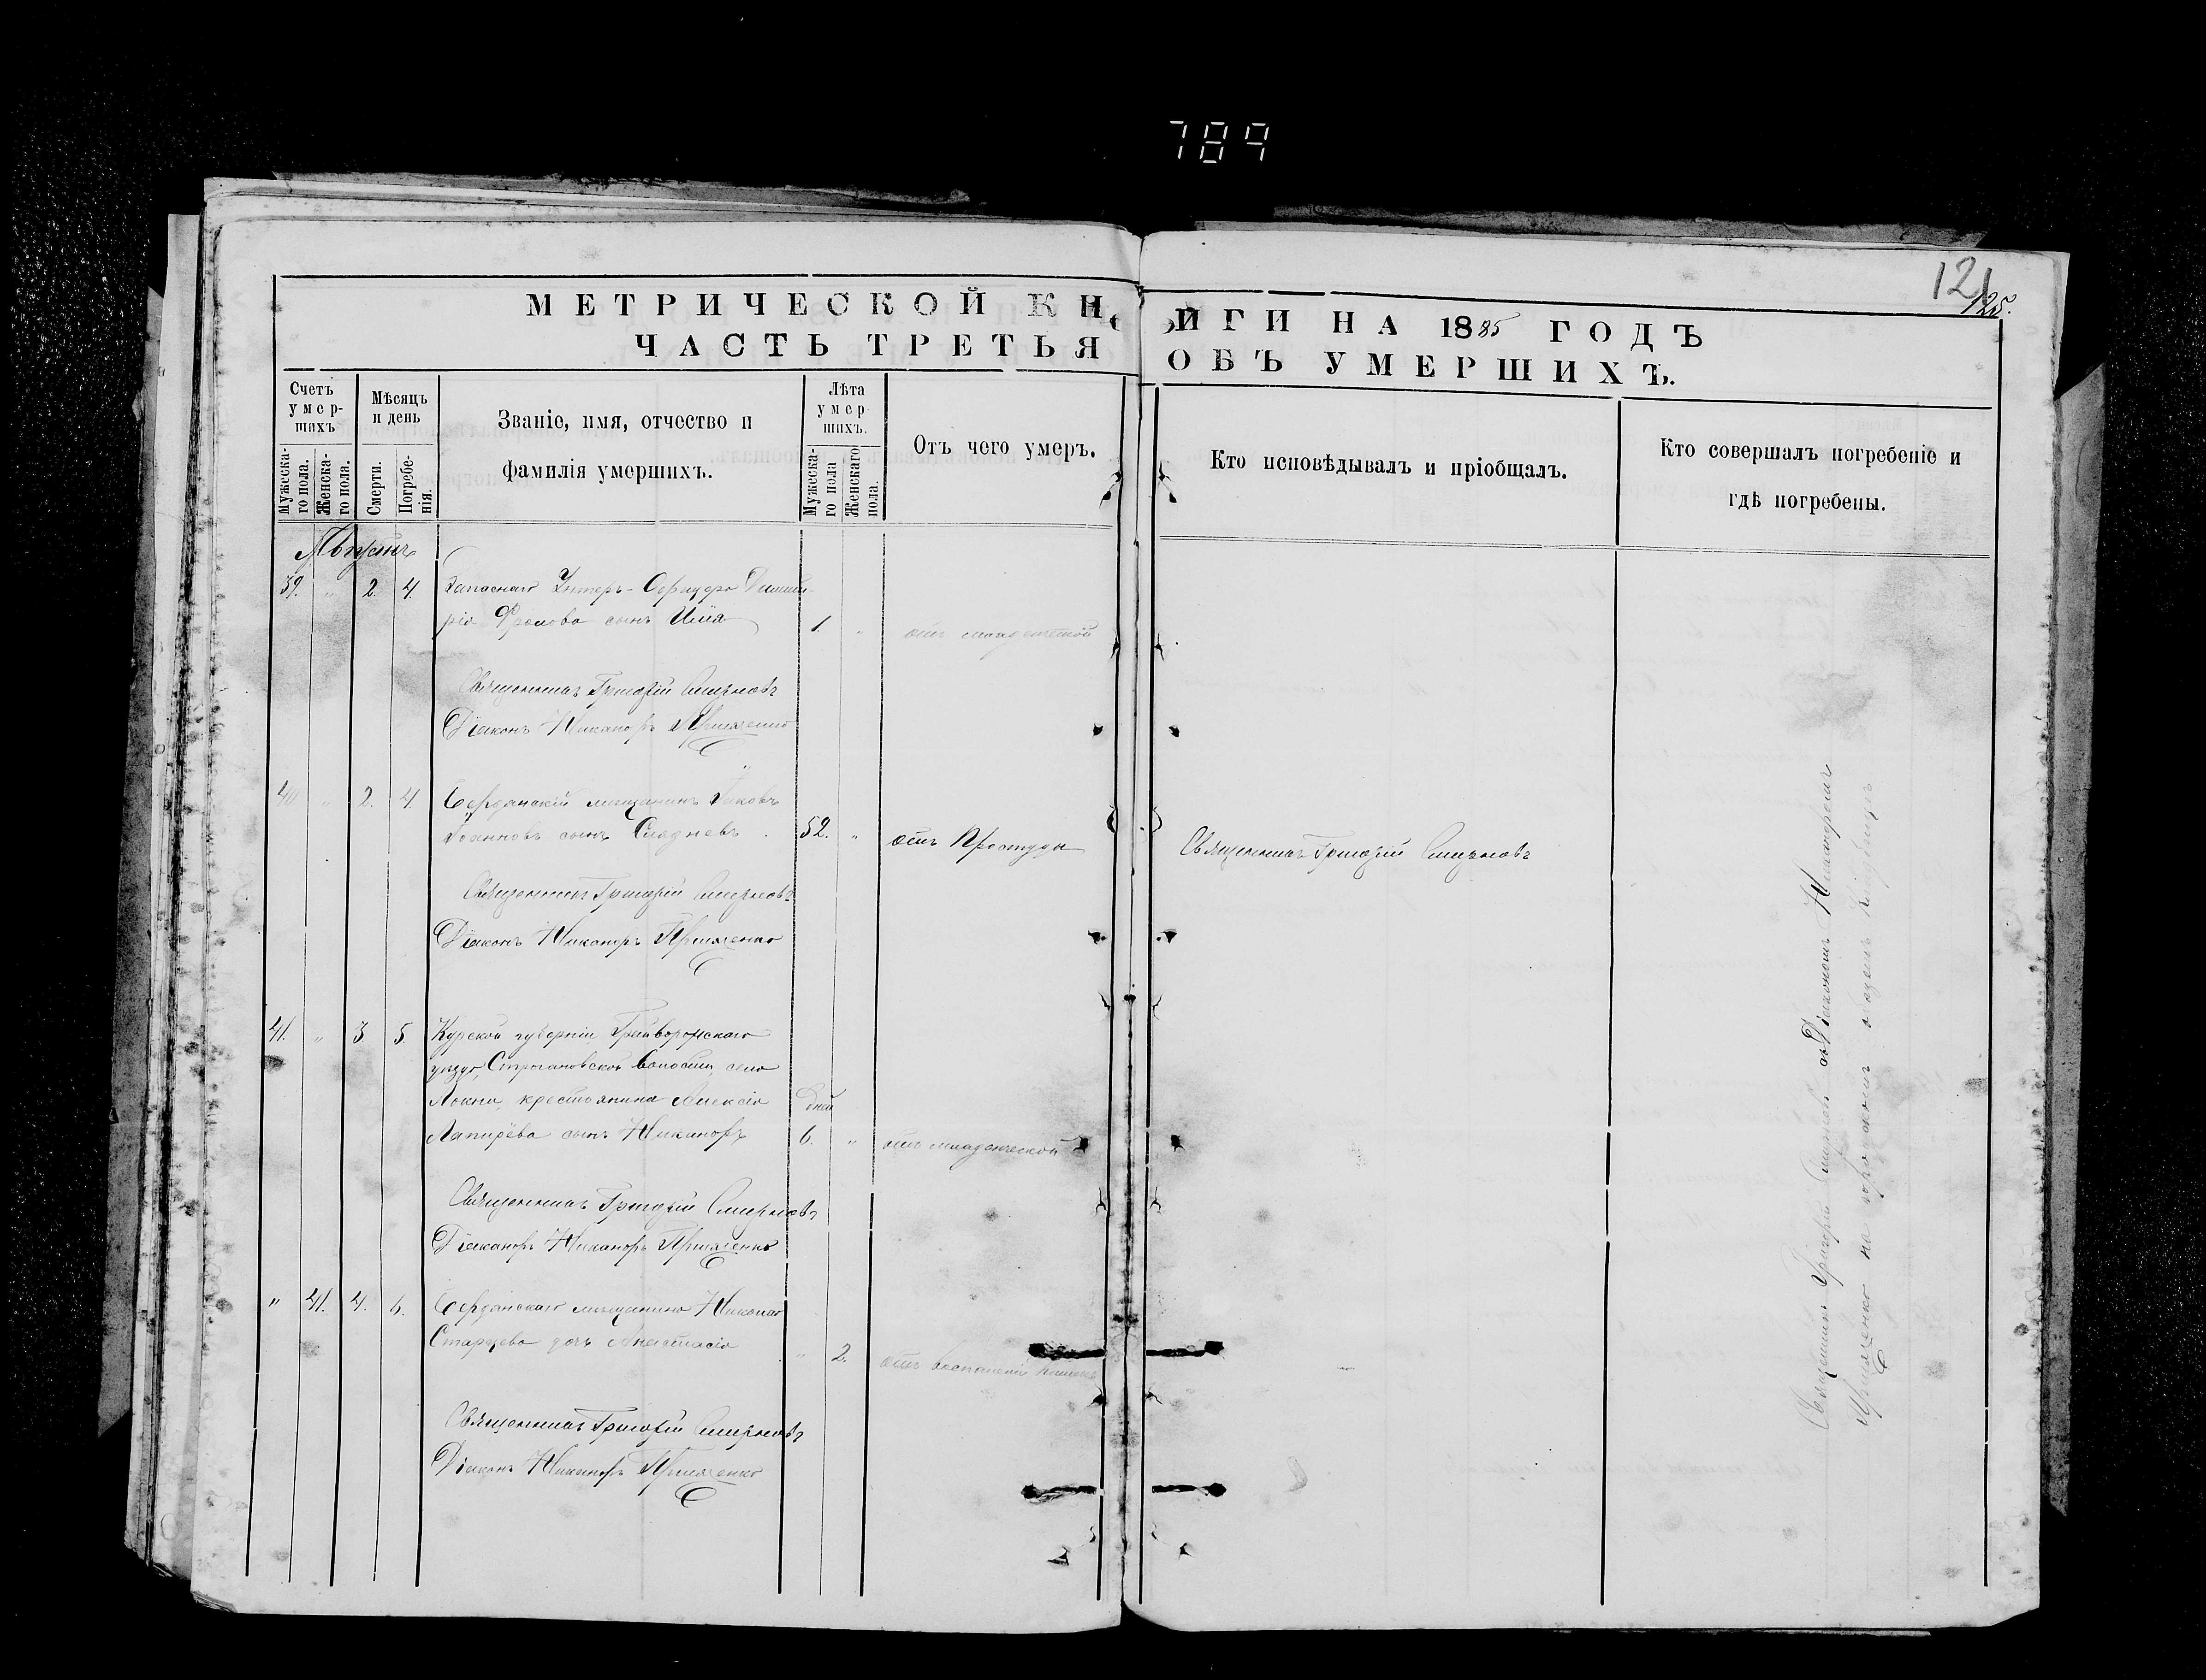 789
121
125.
МЕТРИЧЕСКОЙ КНИГИ НА 1885 ГОДЪ
ЧАСТЬ ТРЕТЬЯ ОБЪ УМЕРШИХЪ.
Счетъ умер-шихъ
Мужеска-го пола.
Женска-го пола.
Мѣсяцъ и день
Смерти.
Погребе-нія.
Званіе, имя, отчество и
фамилія умершихъ.
Лѣта умер-шихъ.
Мужеска-го пола
Женскаго пола.
Отъ чего умеръ.
Кто исповѣдывалъ и пріобщалъ.
Кто совершалъ погребеніе и
гдѣ погребены.
Августъ
39. " 2. 4. Запаснаго Унтеръ-Офицера Димит-
рія Фролова сынъ Илія 1. " отъ младенческой
Священникъ Григорій Смирновъ
Діаконъ Никаноръ
40 " 2. 4 Бердянскій мѣщанинъ Іаковъ
Іоанновъ сынъ 52. " отъ Простуды Священникъ Григорій Смирновъ
Священникъ Григорій Смирновъ
Діаконъ Никаноръ
41. " 3 5. Курской губерніи, Грайворонскаго
уѣзда, Строгановской Волости, села
Локни, крестьянина Алексія дней
Лапирёва сынъ Никаноръ 6. " отъ младенческой
Священникъ Григорій Смирновъ
Никаноръ
" 41. 4. 6. Бердянскаго мѣщанина Николая
Старцева дочь Анастасія " 2. отъ воспаленія
Священникъ Григорій Смирновъ
Діаконъ Никаноръ
Священникъ Григорій Смирновъ съ Діакономъ Никаноромъ
на городскомъ кладбищѣ